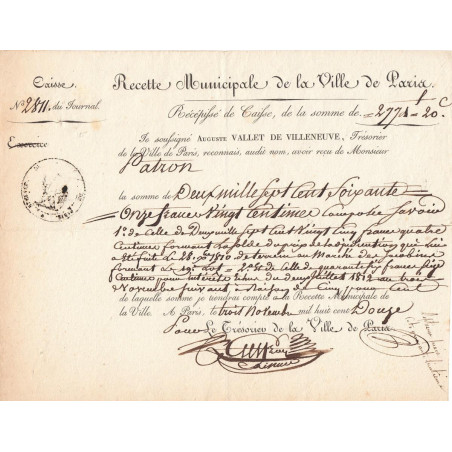 Caisse.
Recette Municipale de la Ville de Paris.
N.° 2811. du Journal.
Récépissé de Caisse, de la somme de = 2771 f = 20. c
Exercice
Je soussigné AUGUSTE VALLET DE VILLENEUVE, Trésorier
de la Ville de Paris, reconnais, audit nom, avoir reçu de Monsieur
Patron
la somme de Deux mille Sept Cent Soixante
Onze francs Vingt Centimes Composée Savoir
1.° de Celle de Deux mille Sept Cent Vingt Cinq francs quatre
Centimes formant le solde du prix de
a été fait le 28 1810 de terrein au Marché des Jacobins
formant le lot = 2.° Et de Celle de quarante Six francs Seize
Centimes pour intérêts du 1812 au trois
Novembre Suivant à Raison de Cinq pour Cent
de laquelle somme je tiendrai compte à la Recette Municipale de
la Ville. A Paris, le trois Novembre mil huit cent Douze
Pour Le Trésorier de la Ville de Paris